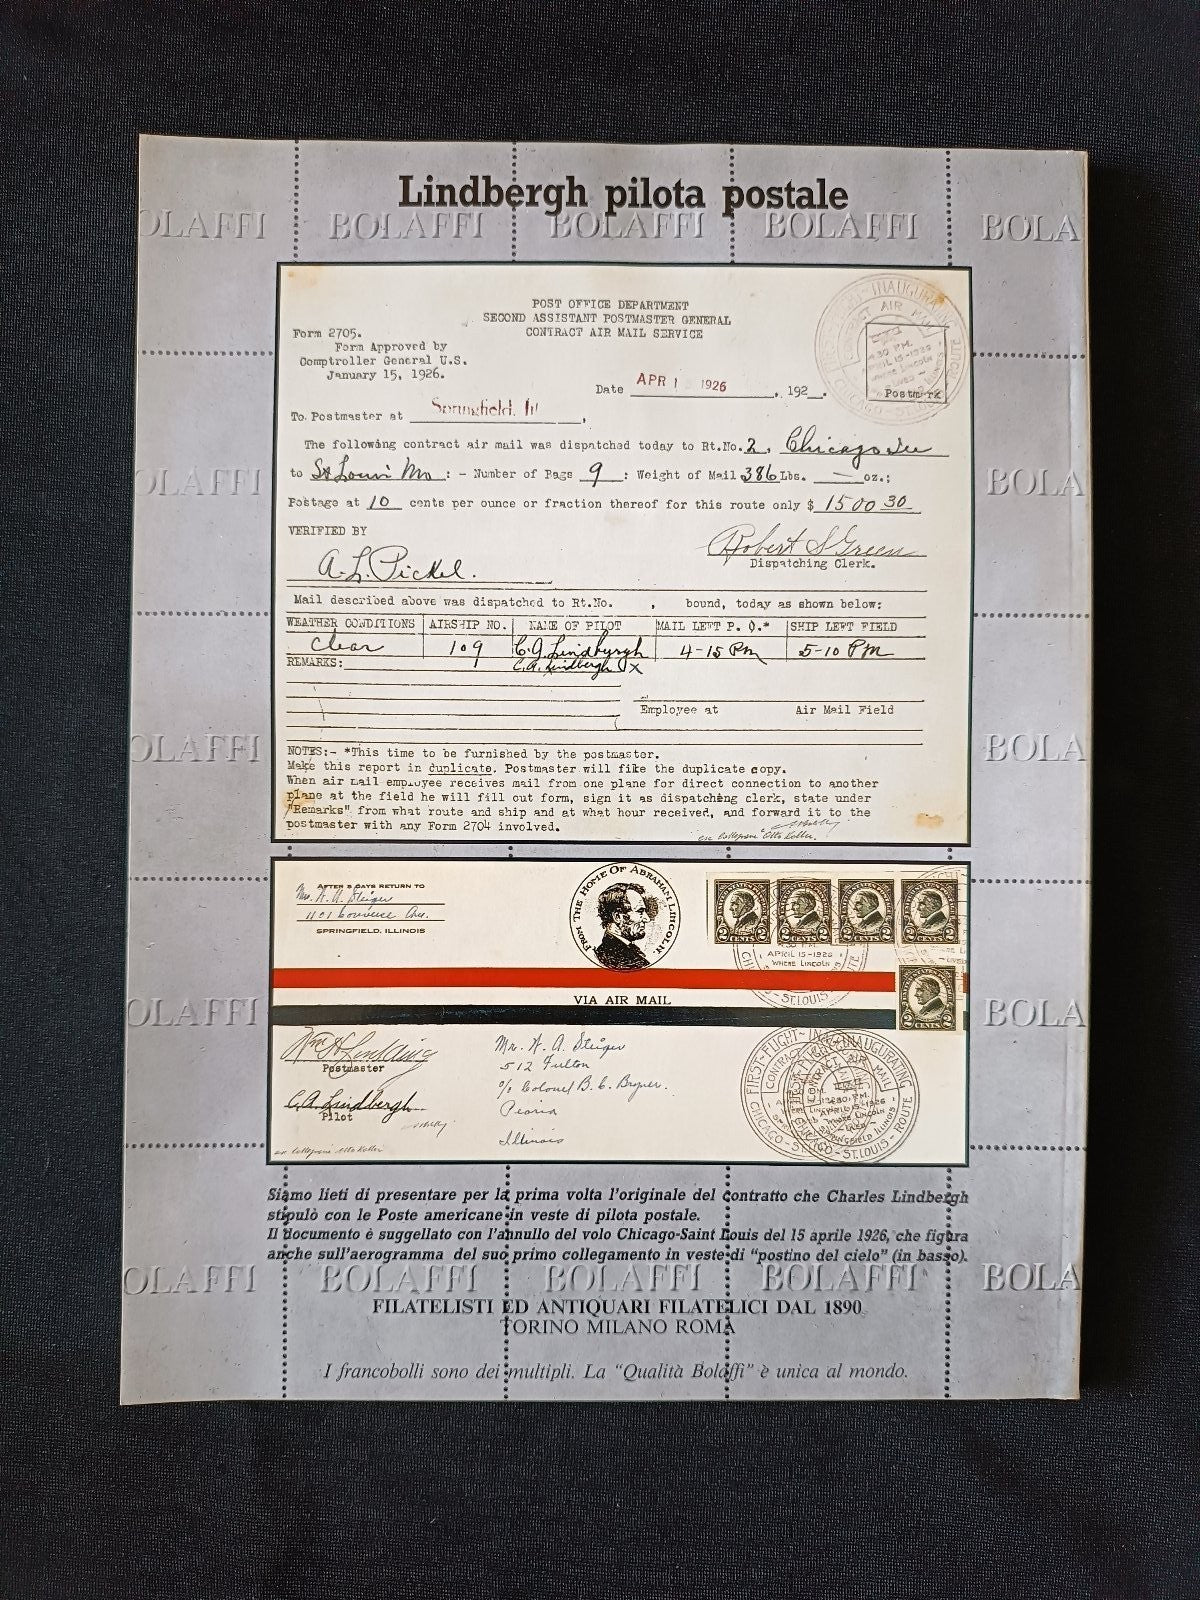 Lindbergh pilota postale
OLAFFI BOLAFFI BOLAFFI BOLAFFI BOLA
POST OFFICE DEPARTMENT
SECOND ASSISTANT POSTMASTER GENERAL
CONTRACT AIR MAIL SERVICE
Form 2705.
Form Approved by
Comptroller General U.S.
January 15, 1926.
Date APR 15 1926, 192_.
Postmark
To Postmaster at Springfield, Ill.,
The following contract air mail was dispatched today to Rt.No.2, Chicago Ill
to St Louis Mo : - Number of Pags 9 : Weight of Mail 386 Lbs. — oz.;
Postage at 10 cents per ounce or fraction thereof for this route only $ 1500 30
VERIFIED BY
Robert S Green
Dispatching Clerk.
A. L. Pickel.
Mail described above was dispatched to Rt.No. , bound, today as shown below:
WEATHER CONDITIONS AIRSHIP NO. NAME OF PILOT MAIL LEFT P. O.* SHIP LEFT FIELD
Clear 109 C.A. Lindburgh 4-15 PM 5-10 PM
REMARKS: C.A. Lindbergh X
Employee at Air Mail Field
NOTES:- *This time to be furnished by the postmaster.
Make this report in duplicate. Postmaster will file the duplicate copy.
When air mail employee receives mail from one plane for direct connection to another
plane at the field he will fill out form, sign it as dispatching clerk, state under
"Remarks" from what route and ship and at what hour received, and forward it to the
postmaster with any Form 2704 involved.
ex collezione Otto Koller.
OLAFFI BOLA
OLAFFI BOLA
AFTER 5 DAYS RETURN TO
Mrs. W. A. Steiger
1101 Converse Ave.
SPRINGFIELD, ILLINOIS
FROM THE HOME OF ABRAHAM LINCOLN.
2 CENTS 2
2 CENTS 2
2 CENTS 2
2 CENTS 2
2 CENTS 2
APRIL 15-1926
WHERE LINCOLN
ST. LOUIS
VIA AIR MAIL
OLAFFI BOLA
Wm H Conkling
Postmaster
C.A. Lindbergh
Pilot
ex collezione Otto Koller
Mr. W. A. Steiger
512 Fulton
c/o Colonel B. C. Bryner.
Peoria
Illinois
FIRST-FLIGHT~INAUGURATING
CONTRACT AIR MAIL
APRIL 15-1926
WHERE LINCOLN
SPRINGFIELD ILLINOIS
CHICAGO-ST.LOUIS-ROUTE
Siamo lieti di presentare per la prima volta l'originale del contratto che Charles Lindbergh
stipulò con le Poste americane in veste di pilota postale.
Il documento è suggellato con l'annullo del volo Chicago-Saint Louis del 15 aprile 1926, che figura
anche sull'aerogramma del suo primo collegamento in veste di "postino del cielo" (in basso).
OLAFFI BOLAFFI BOLAFFI BOLAFFI BOLA
FILATELISTI ED ANTIQUARI FILATELICI DAL 1890
TORINO MILANO ROMA
I francobolli sono dei multipli. La "Qualità Bolaffi" è unica al mondo.